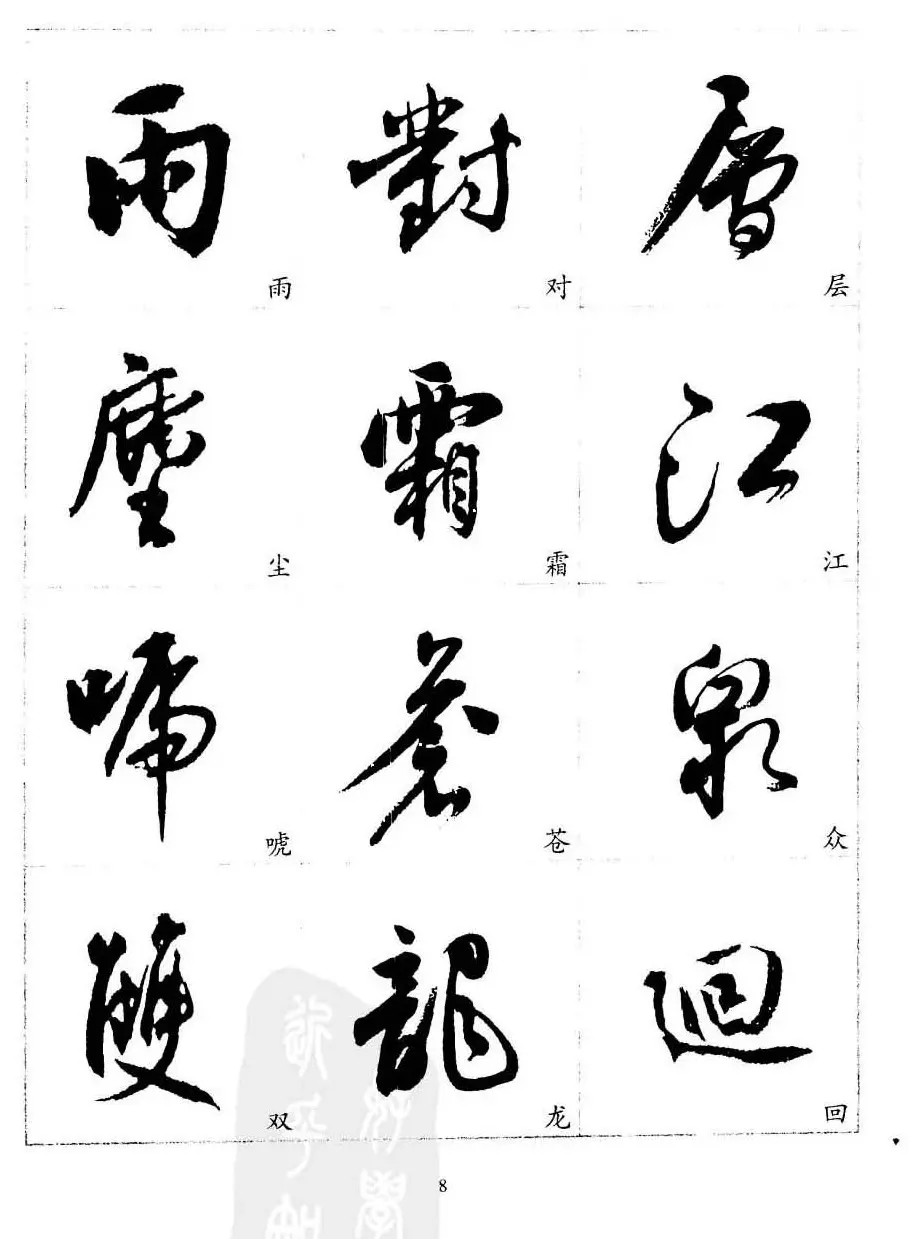 雨 對 層
雨 对 层
塵 霜 江
尘 霜 江
唬 蒼 衆
唬 苍 众
雙 龍 迴
双 龙 回
8